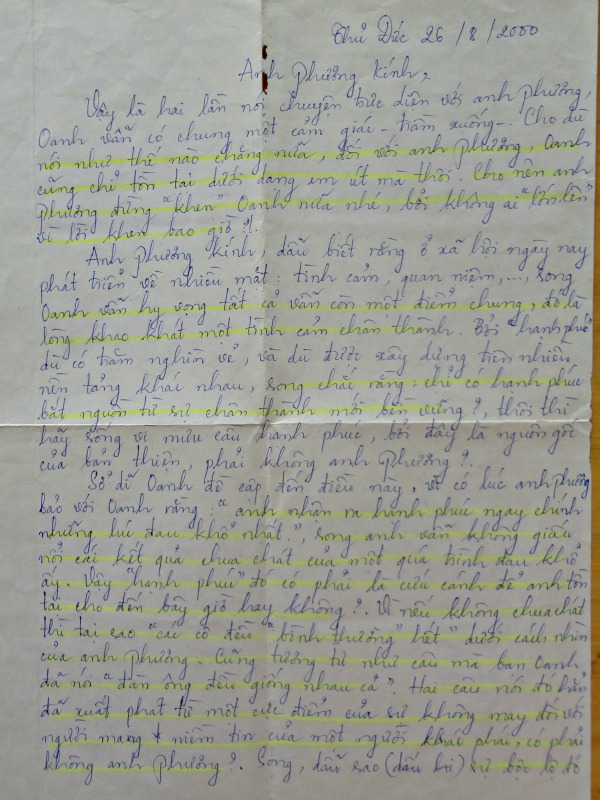 Thủ Đức 26/8/2000
Anh Phương kính,
Vậy là hai lần nói chuyện trực diện với anh Phương,
Oanh vẫn có chung một cảm giác - trầm xuống -. Cho dù
nói như thế nào chăng nữa, đối với anh Phương, Oanh
cũng chỉ tồn tại dưới dạng em út mà thôi. Cho nên anh
Phương đừng "khen" Oanh nữa nhé, bởi không ai "lớn lên"
vì lời khen bao giờ?!.
Anh Phương kính, dẫu biết rằng ở xã hội ngày nay
phát triển về nhiều mặt: tình cảm, quan niệm,..., song
Oanh vẫn hy vọng tất cả vẫn còn một điểm chung, đó là
lòng khao khát một tình cảm chân thành. Bởi "hạnh phúc"
dù có trăm nghìn vẻ, và dù được xây dựng trên nhiều
nền tảng khác nhau, song chắc rằng: chỉ có hạnh phúc
bắt nguồn từ sự chân thành mới bền vững?, thôi thì
hãy sống vì mưu cầu hạnh phúc, bởi đây là nguồn gốc
của bản thiện, phải không anh Phương?.
Sở dĩ Oanh đề cập đến điều này, vì có lúc anh Phương
bảo với Oanh rằng: "anh nhận ra hạnh phúc ngay chính
những lúc đau khổ nhất.", song anh vẫn không giấu
nổi cái kết quả chua chát của một quá trình đau khổ
ấy. Vậy "hạnh phúc" đó có phải là cứu cánh để anh tồn
tại cho đến bây giờ hay không?. Vì nếu không chua chát
thì tại sao "các cô đều "bình thường" hết" dưới cách nhìn
của anh Phương. Cũng tương tự như câu mà bạn Oanh
đã nói "đàn ông đều giống nhau cả". Hai câu nói đó hẳn
đã xuất phát từ một cực điểm của sự không may đối với
người mang niềm tin của một người khác phái, có phải
không anh Phương?. Song, dẫu sao (dấu bi) sự bộc lộ đó